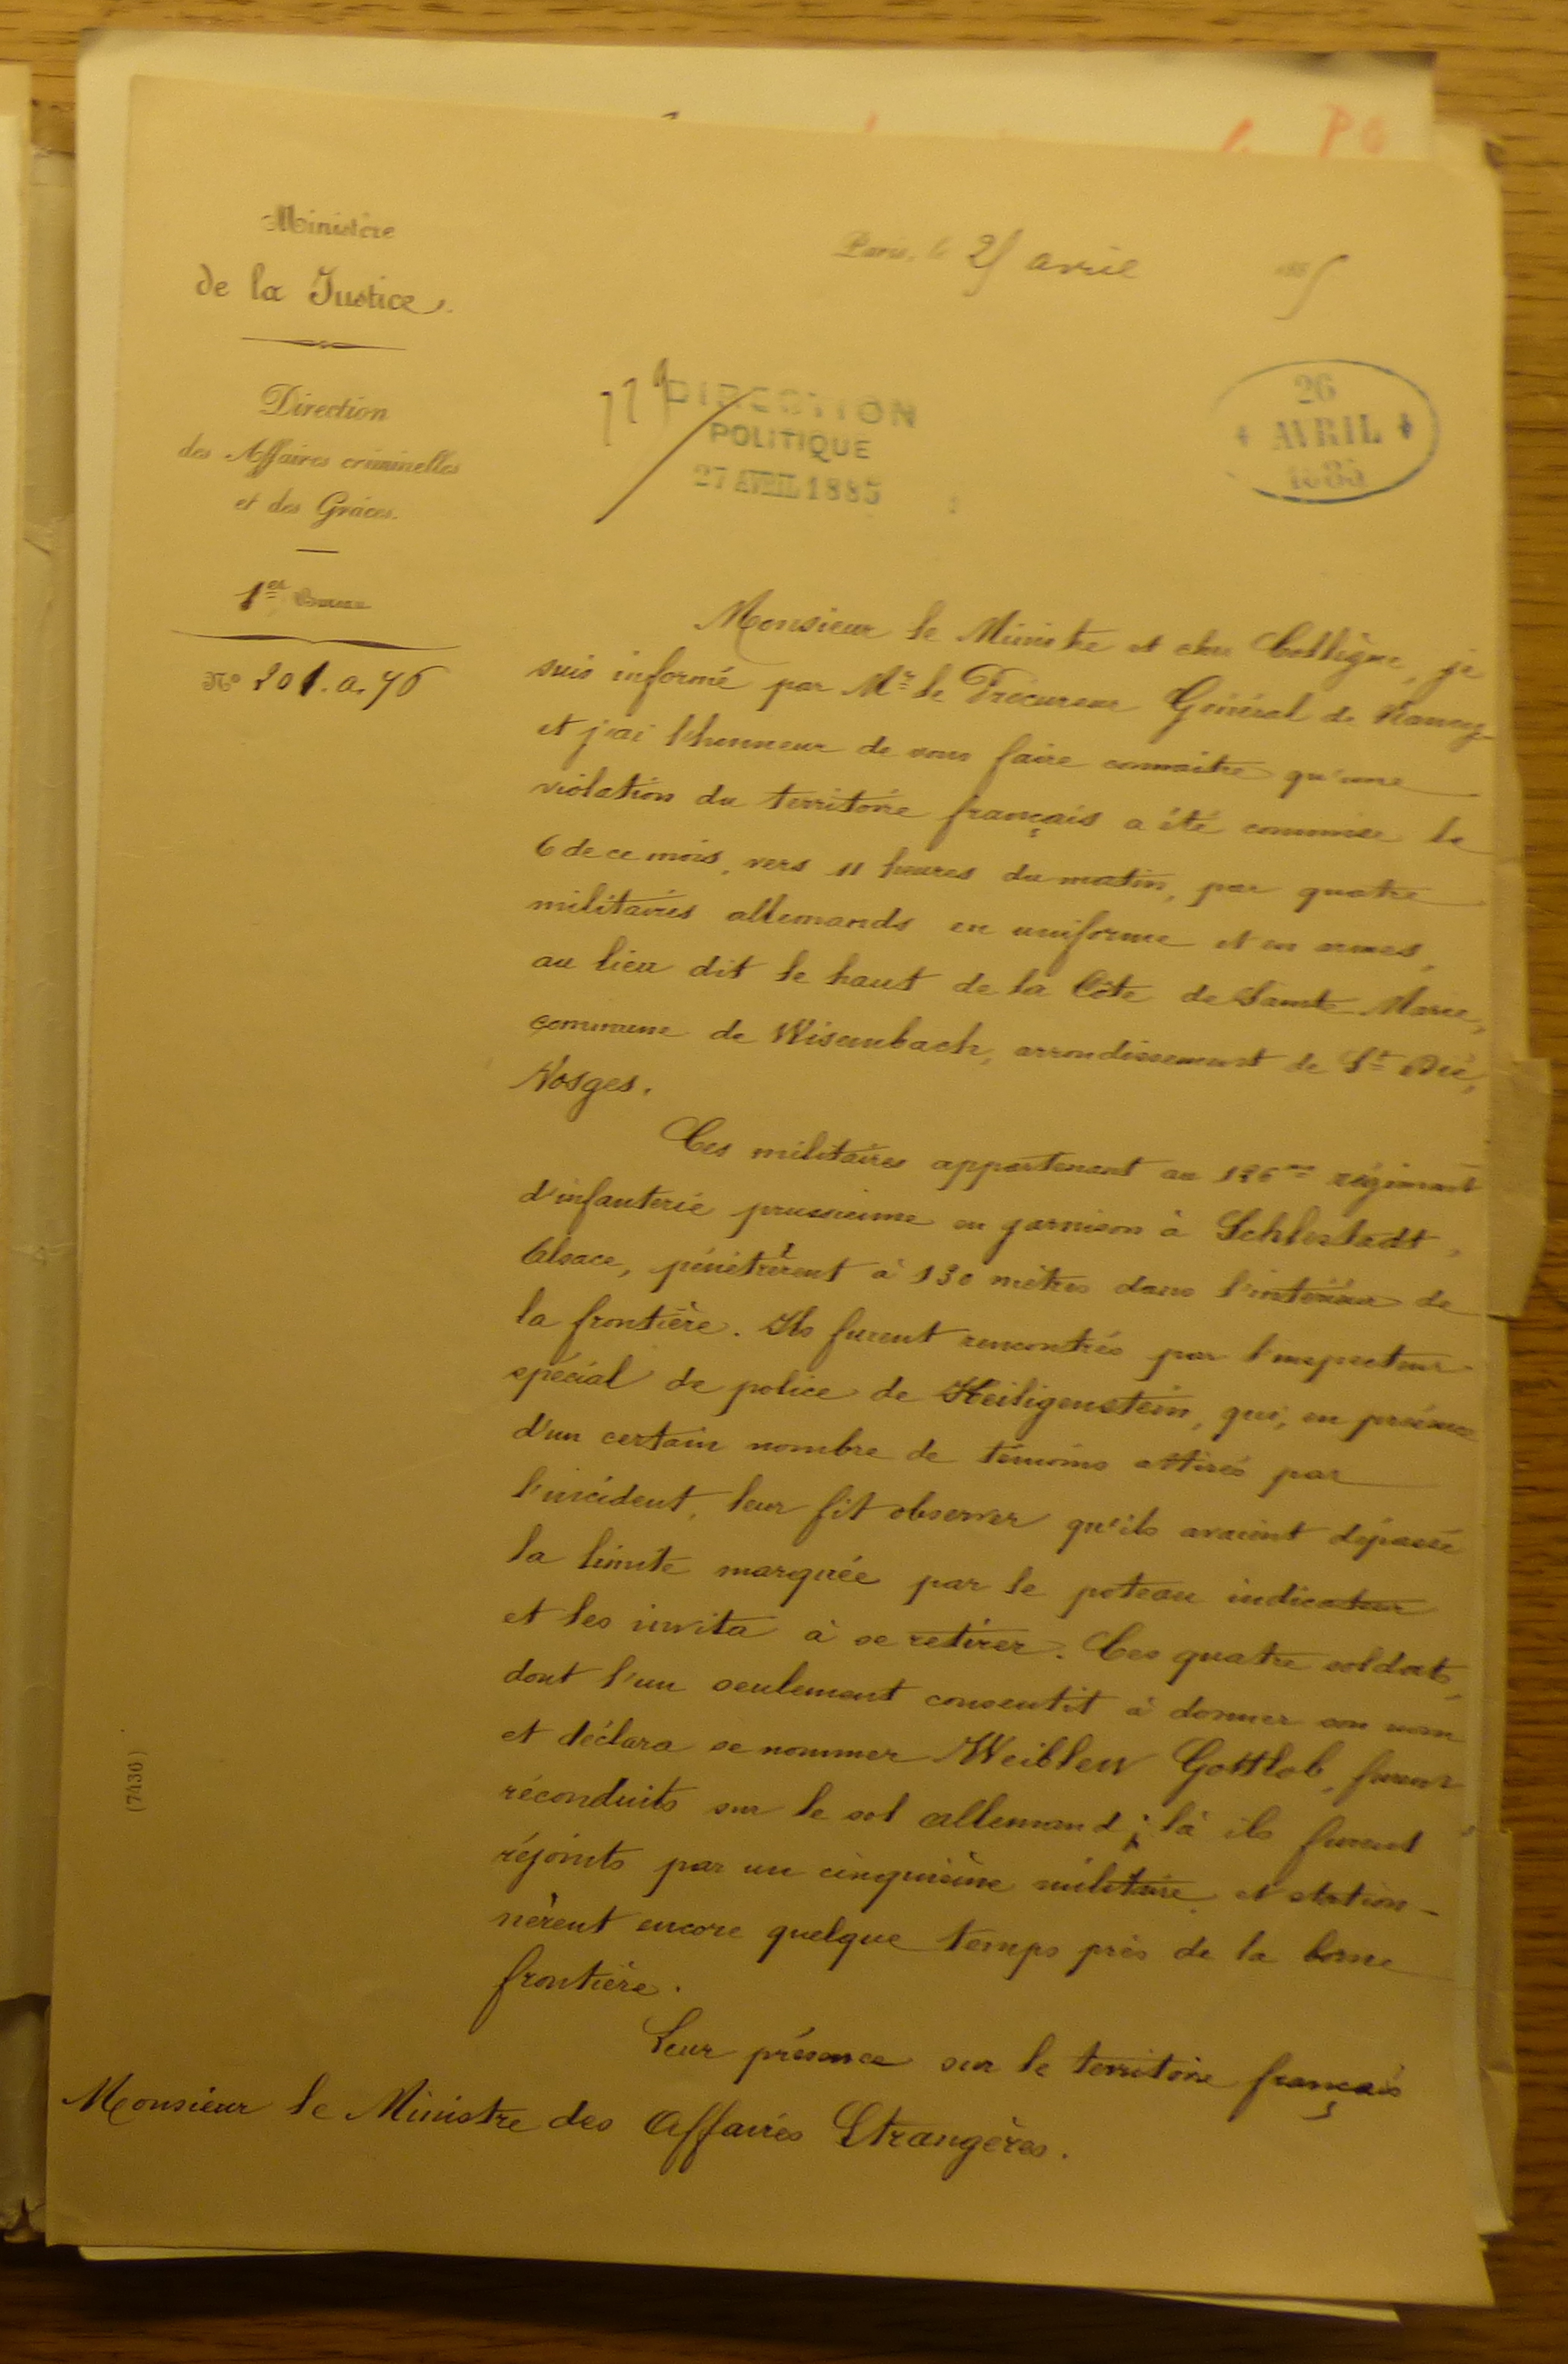 P G
Ministère
de la Justice.
Direction
des Affaires criminelles
et des Grâces.
1er Bureau
No 201.a.76
Paris, le 25 avril 1885
DIRECTION
POLITIQUE
27 AVRIL 1885
26
AVRIL
1885
Monsieur le Ministre et cher Collègue, je
suis informé par Mr le Procureur Général de Nancy
et j'ai l'honneur de vous faire connaître qu'une
violation du territoire français a été commise le
6 de ce mois, vers 11 heures du matin, par quatre
militaires allemands en uniforme et en armes,
au lieu dit le haut de la Côte de Sainte Marie,
commune de Wisembach, arrondissement de St Dié,
Vosges.
Ces militaires appartenant au 126me régiment
d'infanterie prussienne en garnison à Schlestadt,
Alsace, pénétrèrent à 130 mètres dans l'intérieur de
la frontière. Ils furent rencontrés par l'inspecteur
spécial de police de Heiligenstein, qui, en présence
d'un certain nombre de témoins attirés par
l'incident, leur fit observer qu'ils avaient dépassé
la limite marquée par le poteau indicateur
et les invita à se retirer. Ces quatre soldats,
dont l'un seulement consentit à donner son nom
et déclara se nommer Weiblen Gottlob, furent
réconduits sur le sol allemand; là ils furent
réjoints par un cinquième militaire et station-
nèrent encore quelque temps près de la borne
frontière.
Leur présence sur le territoire français
Monsieur le Ministre des Affaires Etrangères.
(7430)